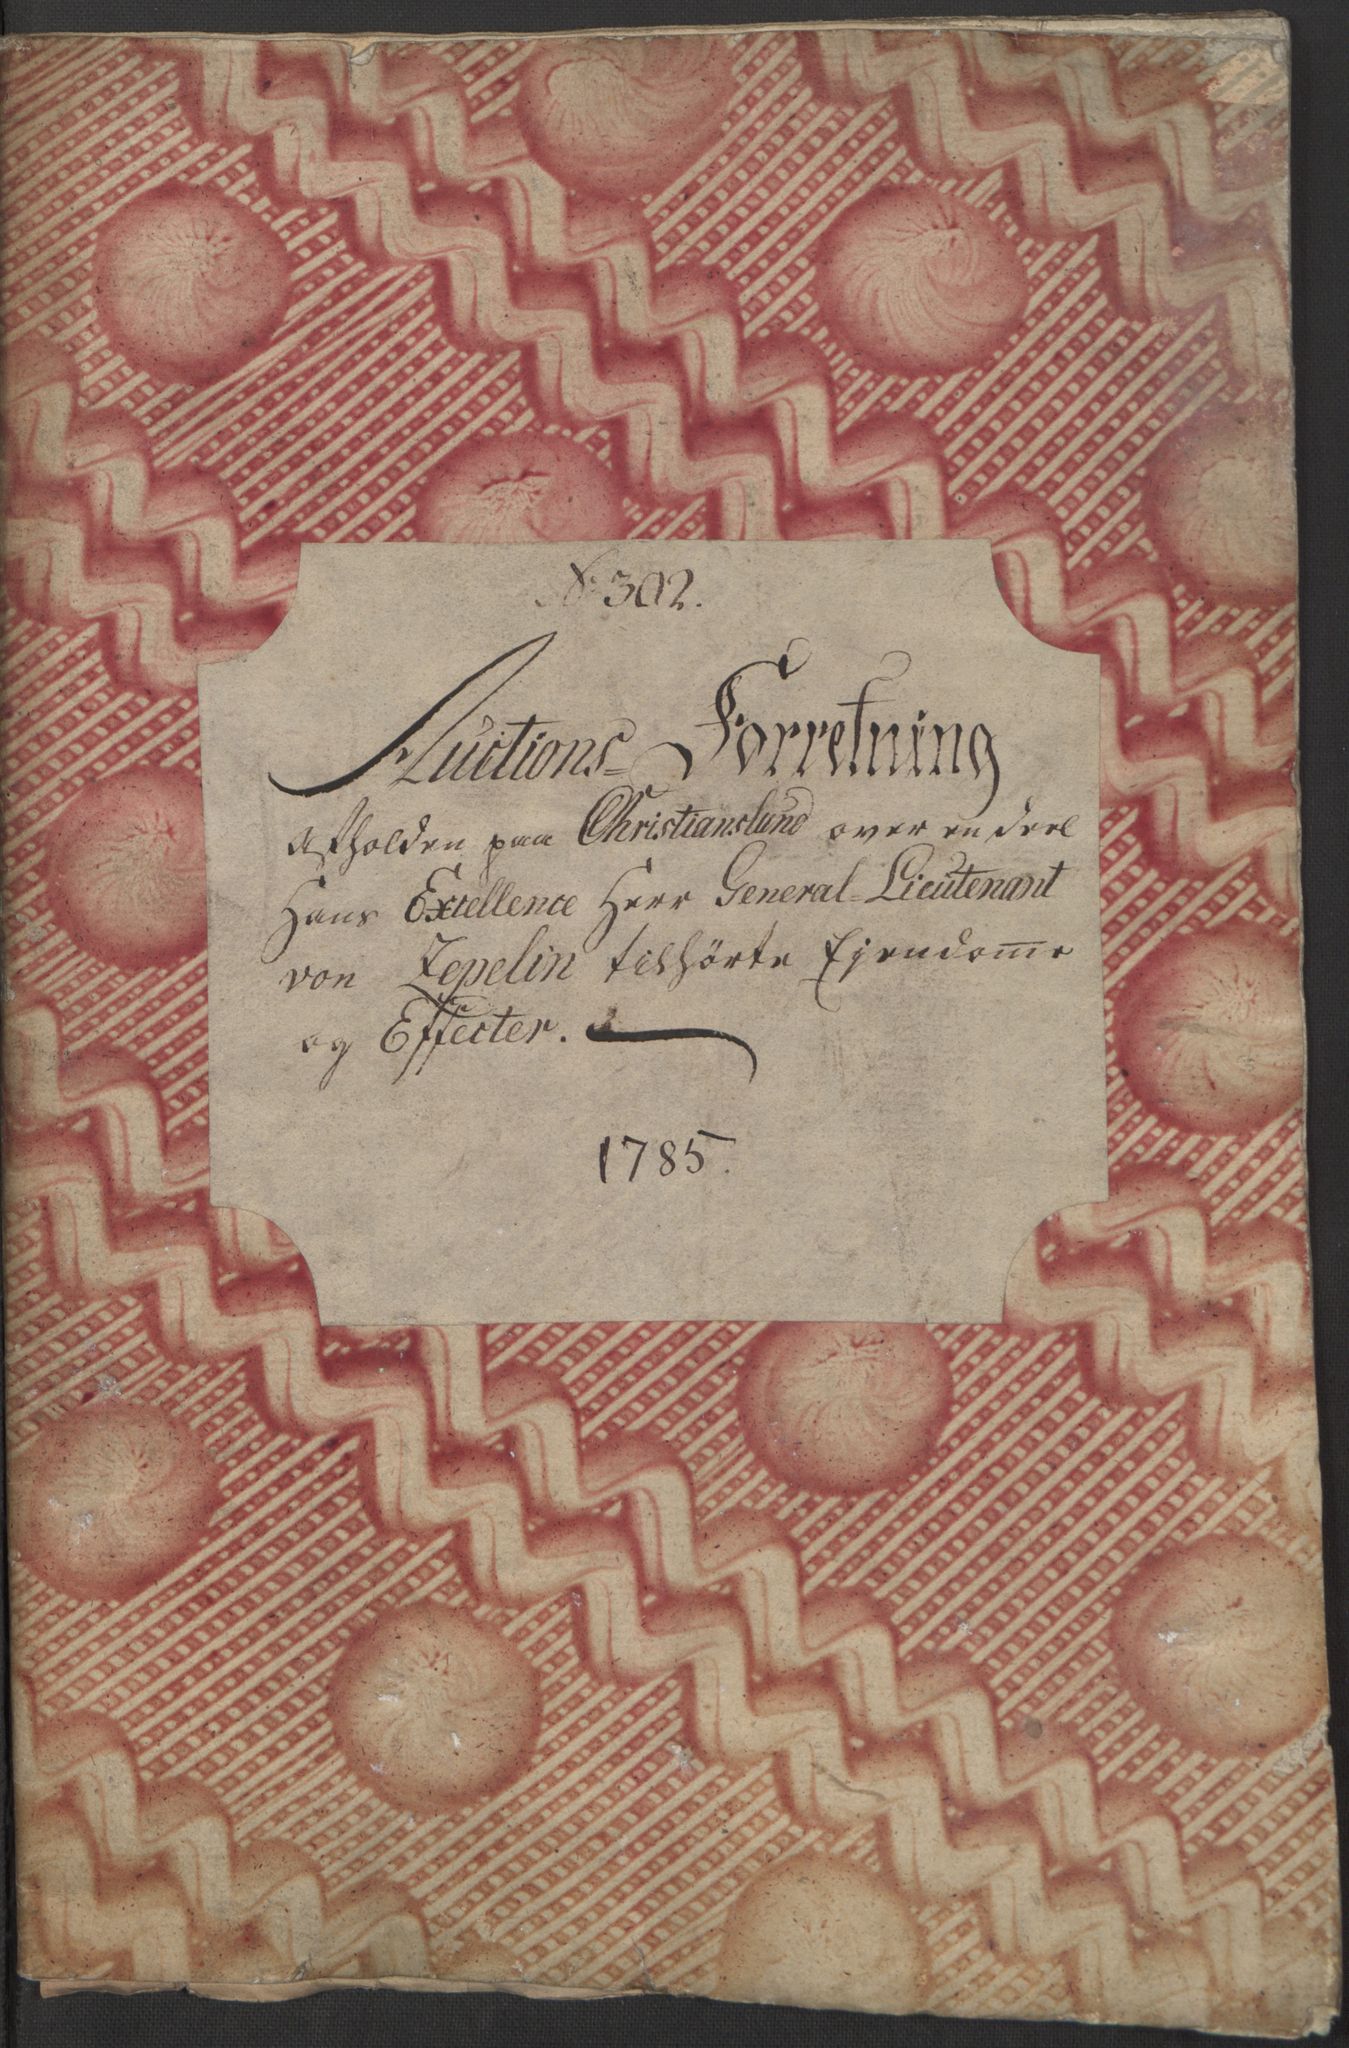 No 302.
Auctions= Forretning
afholden paa Christianslund over en deel
Hans Excellence Herr General=Lieutenant
von Zepelin tilhörte Ejendomme
og Effecter.
1785.